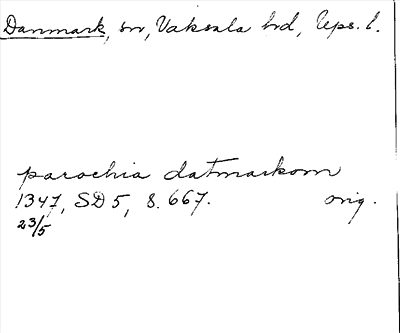 Danmark, sn, Vaksala hd, Ups. l.
parochia datmarkom
1347, SD 5, s. 667. orig.
23/5